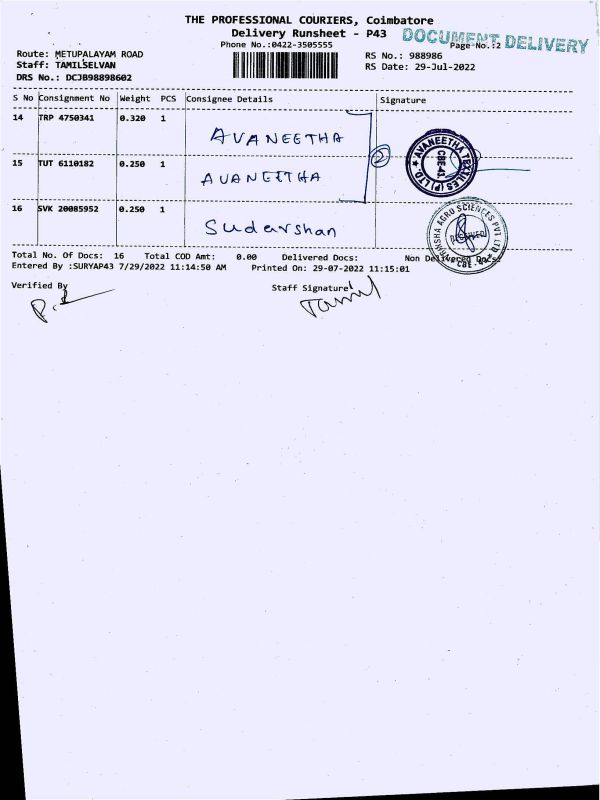 THE PROFESSIONAL COURIERS, Coimbatore
Delivery Runsheet - P43
DOCUMENT DELIVERY
Phone No.:0422-3505555
Page No.:2
Route: METUPALAYAM ROAD
RS No.: 988986
Staff: TAMILSELVAN
RS Date: 29-Jul-2022
DRS No.: DCJB98898602
S No Consignment No Weight PCS Consignee Details Signature
14 TRP 4750341 0.320 1 AVANEETHA
2
AVANEETHA TEXTILES (P) LTD. CBE-43
15 TUT 6110182 0.250 1 AVANEETHA
16 SVK 20085952 0.250 1 Sudarshan
AGRO SCIENCES PVT LTD
RECEIVED
CBE
Total No. Of Docs: 16 Total COD Amt: 0.00 Delivered Docs: Non Delivered Docs:
Entered By :SURYAP43 7/29/2022 11:14:50 AM Printed On: 29-07-2022 11:15:01
Verified By
Staff Signature
Tamil